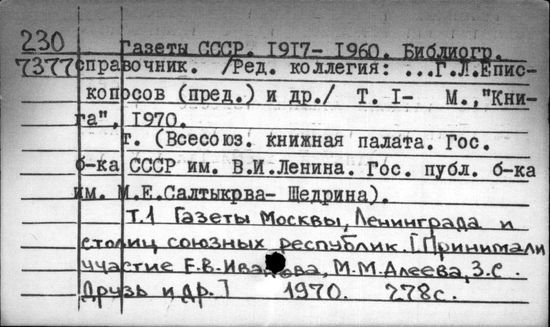 230 Газеты СССР. 1917- 1960. Библиогр.
7377 справочник. /Ред. коллегия: ...Г.Л.Епис-
копосов (пред.) и др./ Т. I- М.,"Кни-
га", 1970.
т. (Всесоюз. книжная палата. Гос.
б-ка СССР им. В.И.Ленина. Гос. публ. б-ка
им. М.Е.Салтыкрва- Щедрина).
Т.1 Газеты Москвы, Ленинграда и
столиц союзных республик. [Принимали
участие Е.В. М.М.Алеева, З.С.
Друзь и др.] 1970. 278с.